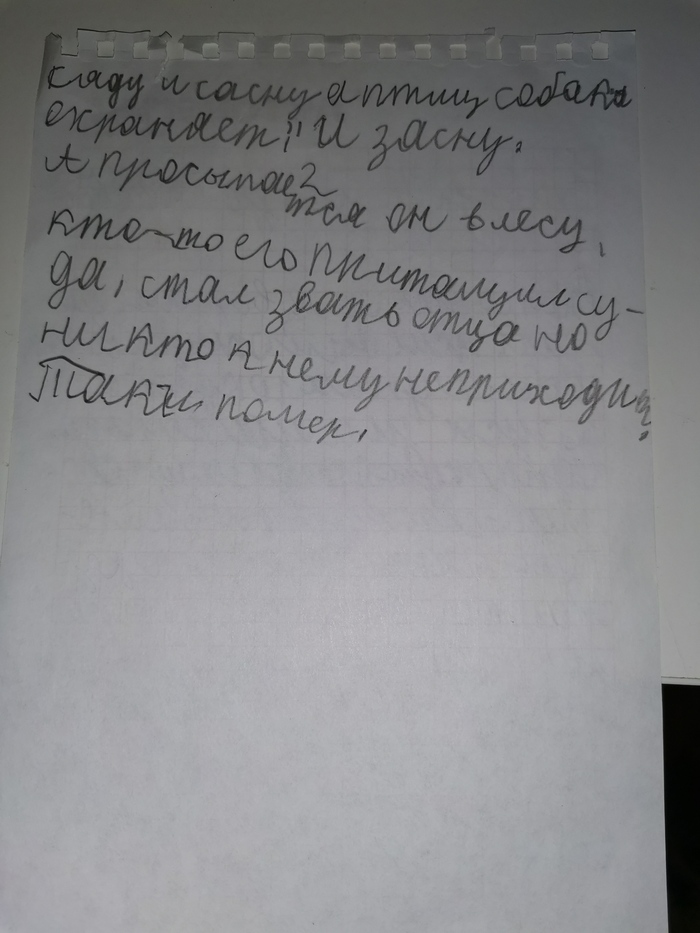 саду и сасну а птиц собака
ехраняет!" И засну.
А просыпае
тся он в лесу,
кто-то его притащил су-
да, стал звать отца но
никто к нему неприходил
Так и помер.